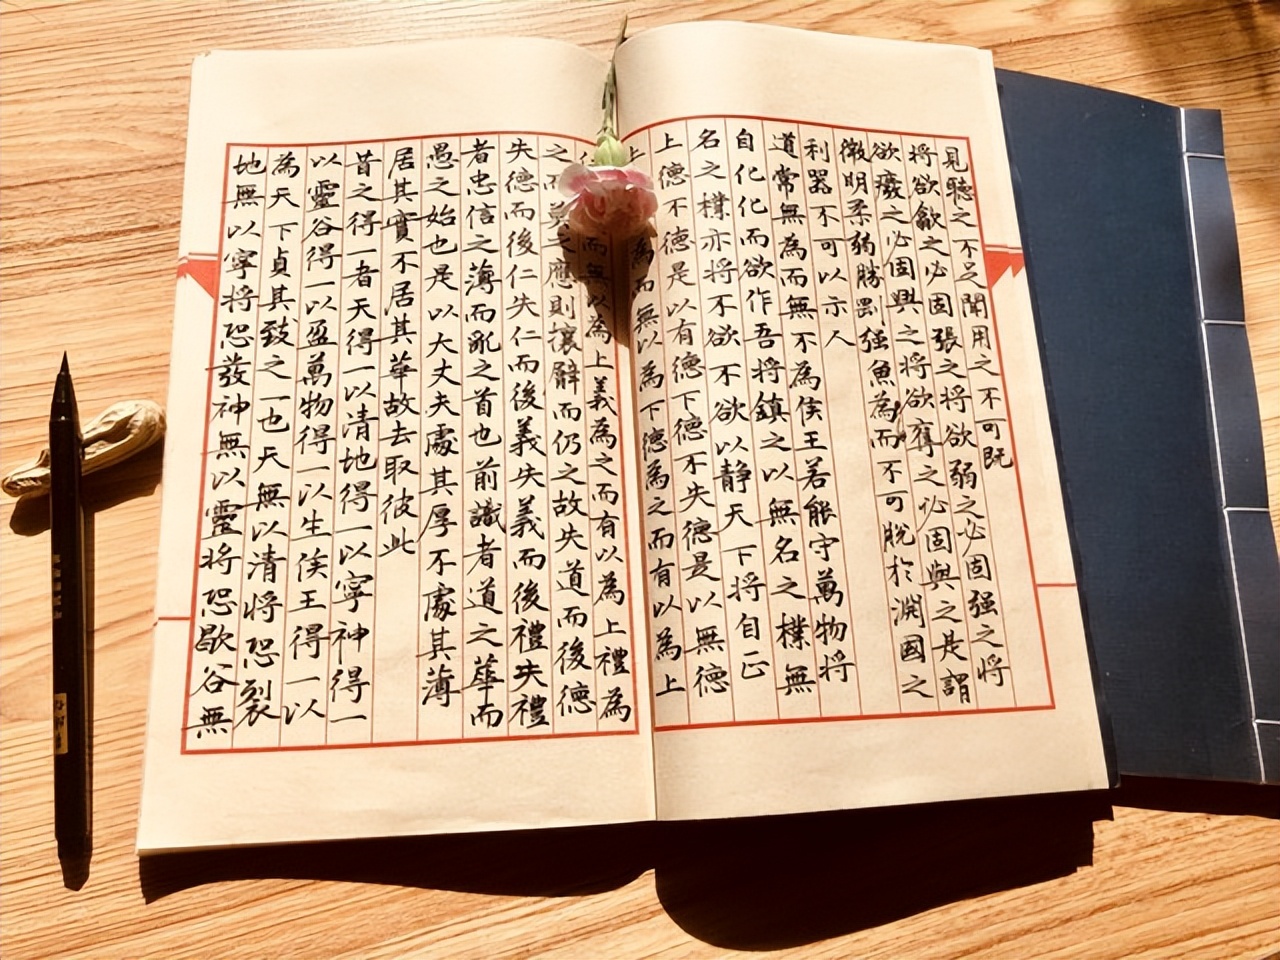 見聽之不足聞用之不可既
將欲歙之必固張之將欲弱之必固强之將
欲廢之必固興之將欲奪之必固與之是謂
微明柔弱勝剛强魚為而不可脫於淵國之
利器不可以示人
道常無為而無不為侯王若能守萬物將
自化化而欲作吾將鎮之以無名之樸無
名之樸亦將不欲不欲以静天下將自正
上德不德是以有德下德不失德是以無德
上為而無以為下德為之而有以為上
而無以為上義為之而有以為上禮為
之而莫之應則攘臂而仍之故失道而後德
失德而後仁失仁而後義失義而後禮失禮
者忠信之薄而亂之首也前識者道之華而
愚之始也是以大丈夫處其厚不處其薄
居其實不居其華故去取彼此
昔之得一者天得一以清地得一以寧神得一
以靈谷得一以盈萬物得一以生侯王得一以
為天下貞其致之一也天無以清將恐裂
地無以寧將恐發神無以靈將恐歇谷無